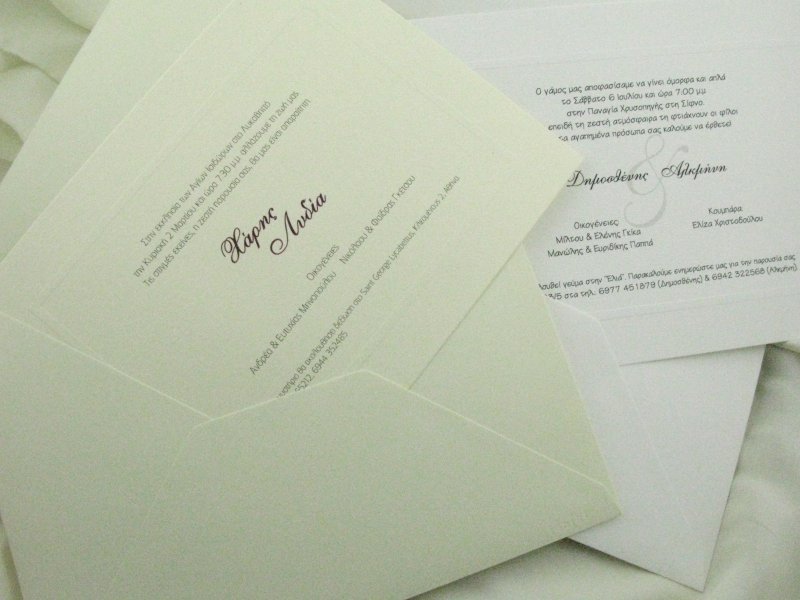 Στην εκκλησία των Αγίων Ισιδώρων στο Λυκαβηττό
την Κυριακή 2 Μαρτίου και ώρα 7.30 μ.μ. αλλάζουμε τη ζωή μας
Τις στιγμές εκείνες, η ζεστή παρουσία σας, θα μας είναι απαραίτητη
Χάρης
Λυδία
Οικογένειες
Ανδρέα & Ευτυχίας Μηνοπούλου Νικολάου & Φαίδρας Γκάτσου
θα ακολουθήσει δεξίωση στο Saint George Lycabettus, Κλεομένους 2, Αθήνα
6944 352485
Ο γάμος μας αποφασίσαμε να γίνει όμορφα και απλά
το Σάββατο 6 Ιουλίου και ώρα 7.00 μ.μ
στην Παναγία Χρυσοπηγής στη Σίφνο.
επειδή τη ζεστή ατμόσφαιρα τη φτιάχνουν οι φίλοι
τα αγαπημένα πρόσωπα σας καλούμε να έρθετε!
Δημοσθένης & Αλκμήνη
Οικογένειες
Μίλτου & Ελένης Γκίκα
Μανώλης & Ευριδίκης Παππά
Κουμπάρα
Ελίζα Χριστοδούλου
γεύμα στην "Ελιά". Παρακαλούμε ενημερώστε μας για την παρουσία σας
3/5 στα τηλ.: 6977 451879 (Δημοσθένης) & 6942 322568 (Αλκμήνη)